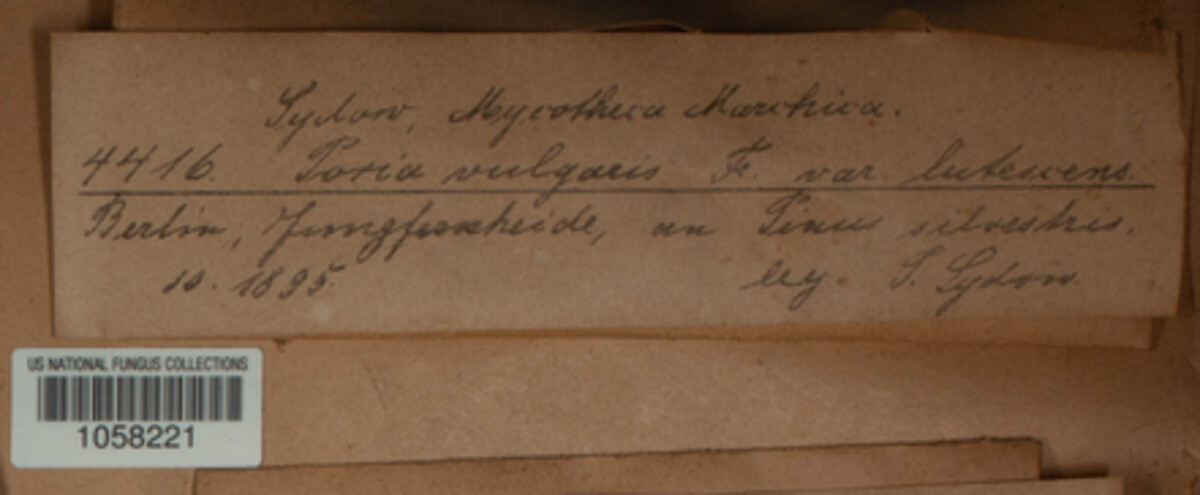 Sydow, Mycotheca Marchica.
4416. Poria vulgaris Fr. var. lutescens.
Berlin, Jungfernheide, an Pinus silvestris.
10. 1895. leg. P. Sydow.
US NATIONAL FUNGUS COLLECTIONS
1058221